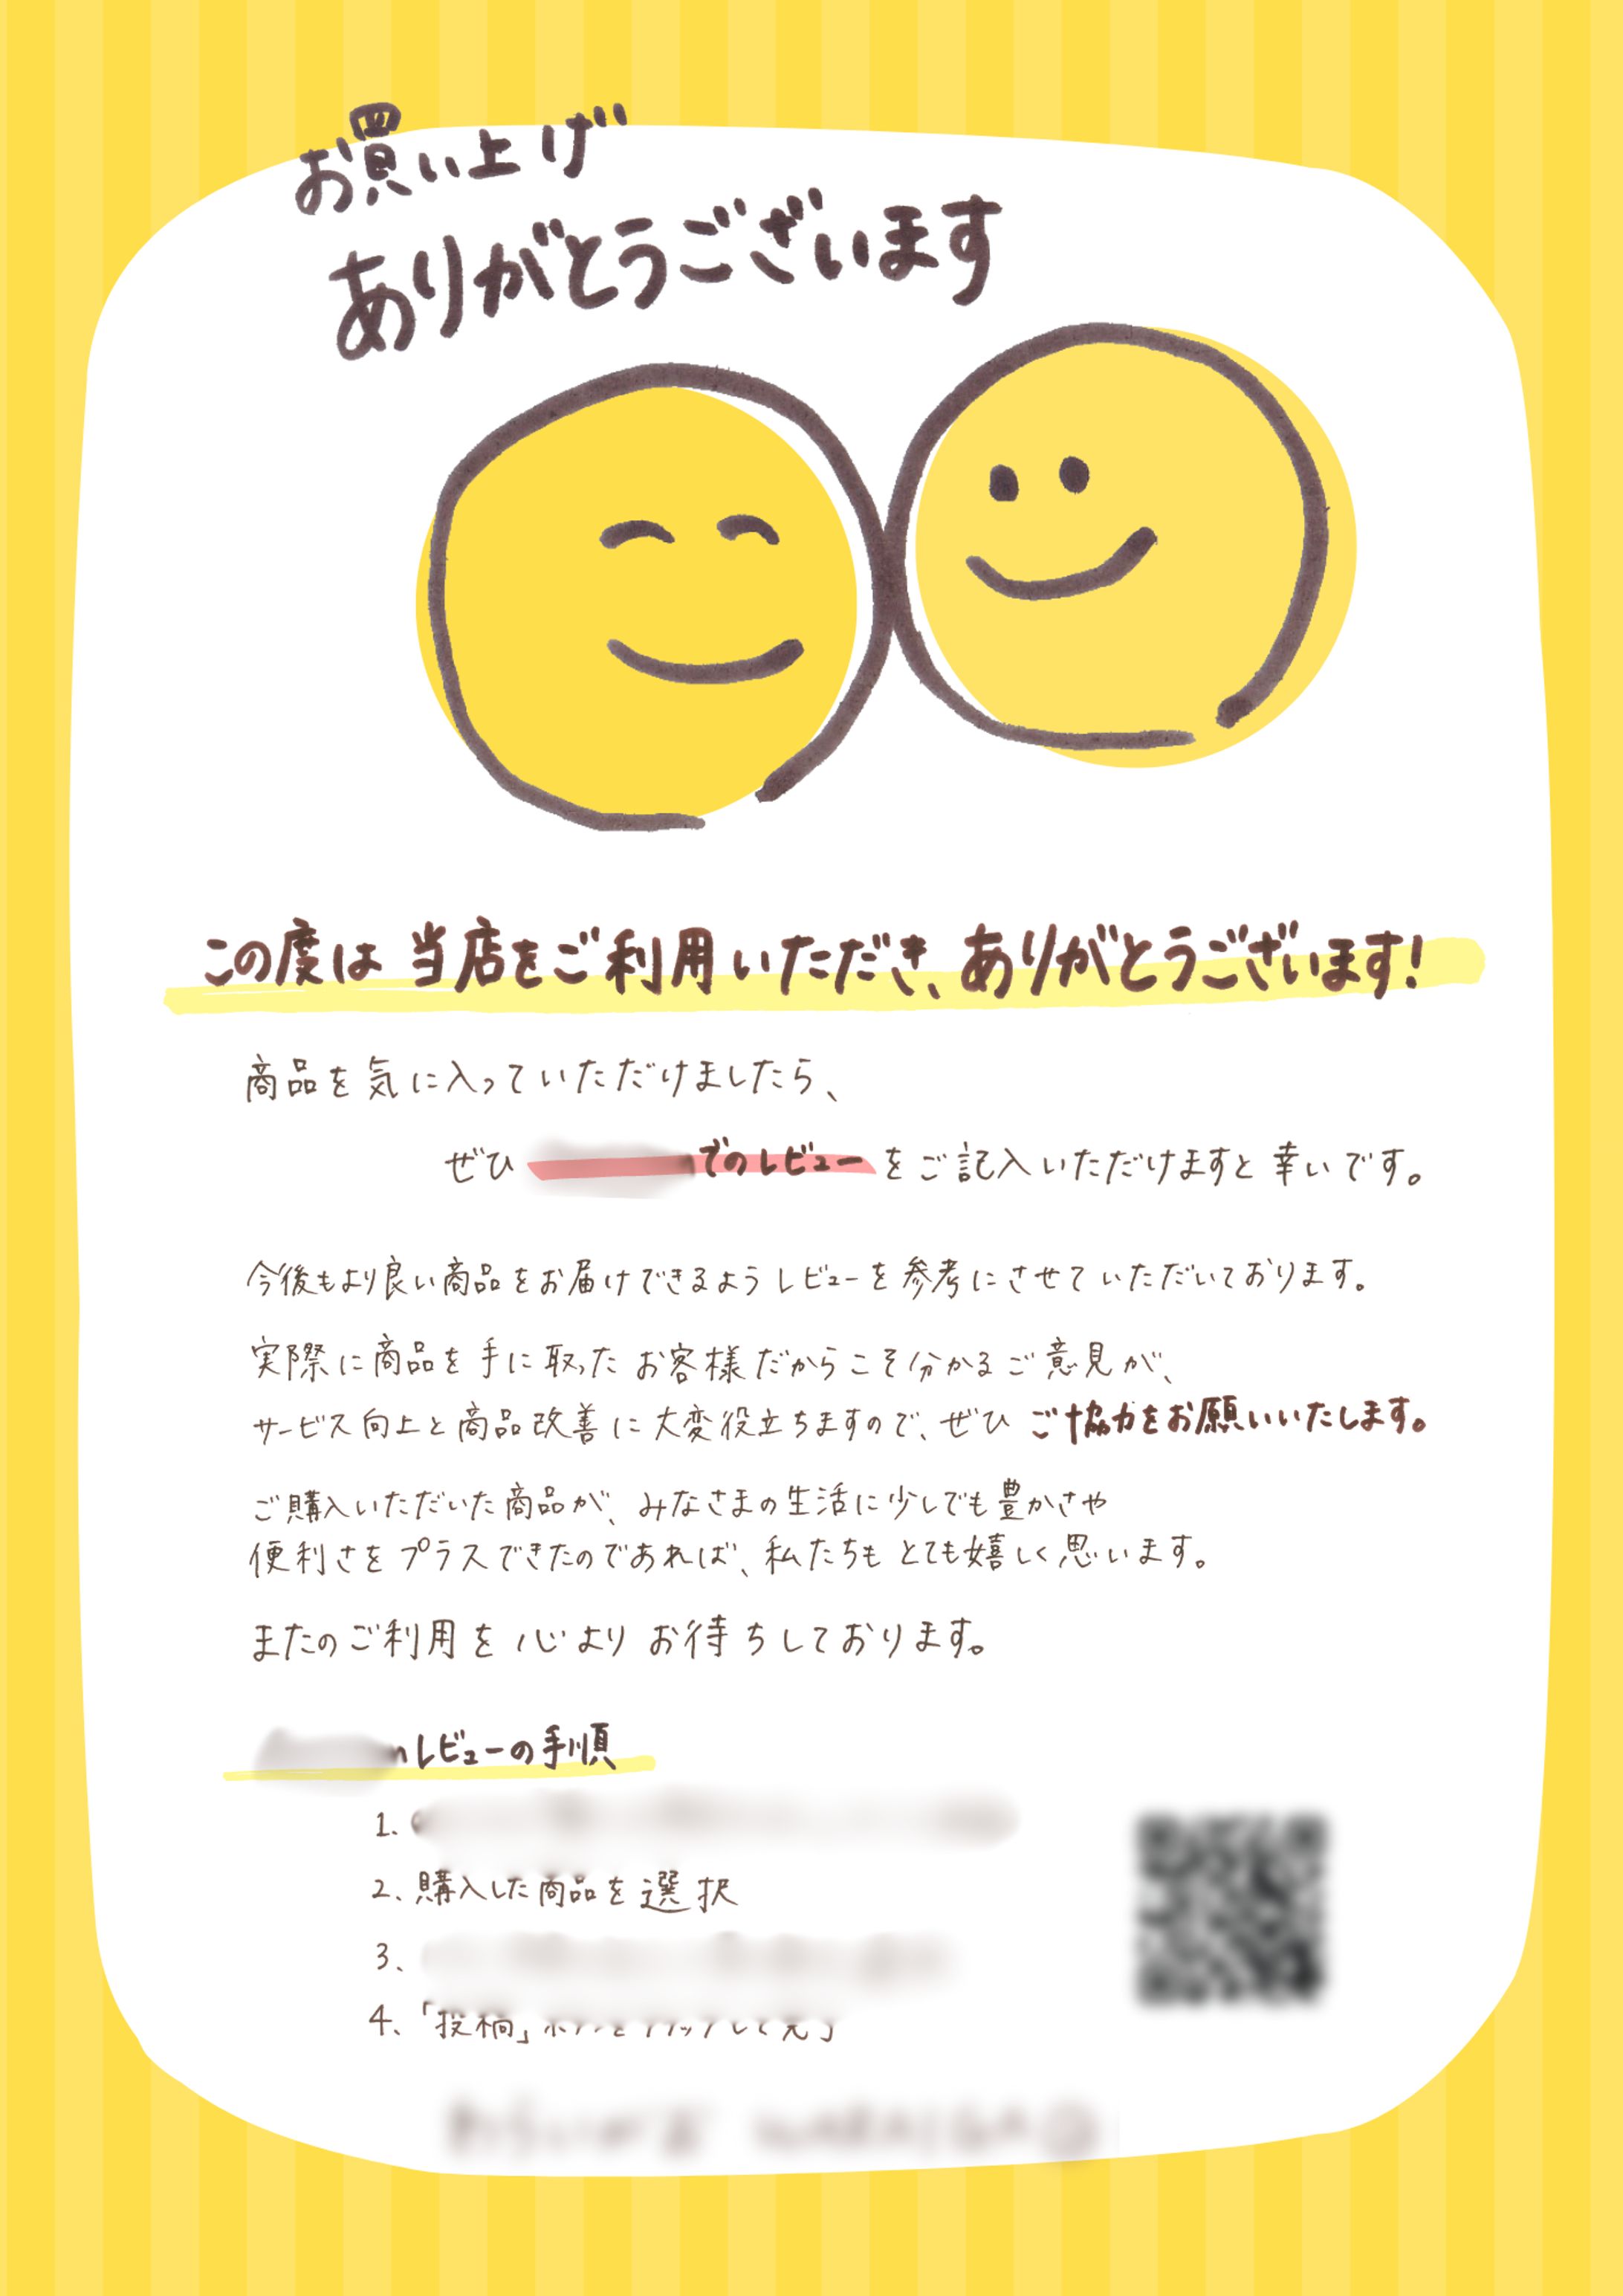 お買い上げ
ありがとうございます
この度は当店をご利用いただき、ありがとうございます!
商品を気に入っていただけましたら、
ぜひ でのレビューをご記入いただけますと幸いです。
今後もより良い商品をお届けできるようレビューを参考にさせていただいております。
実際に商品を手に取ったお客様だからこそ分かるご意見が、
サービス向上と商品改善に大変役立ちますので、ぜひご協力をお願いいたします。
ご購入いただいた商品が、みなさまの生活に少しでも豊かさや
便利さをプラスできたのであれば、私たちもとても嬉しく思います。
またのご利用を心よりお待ちしております。
レビューの手順
1.
2.購入した商品を選択
3.
4.「投稿」